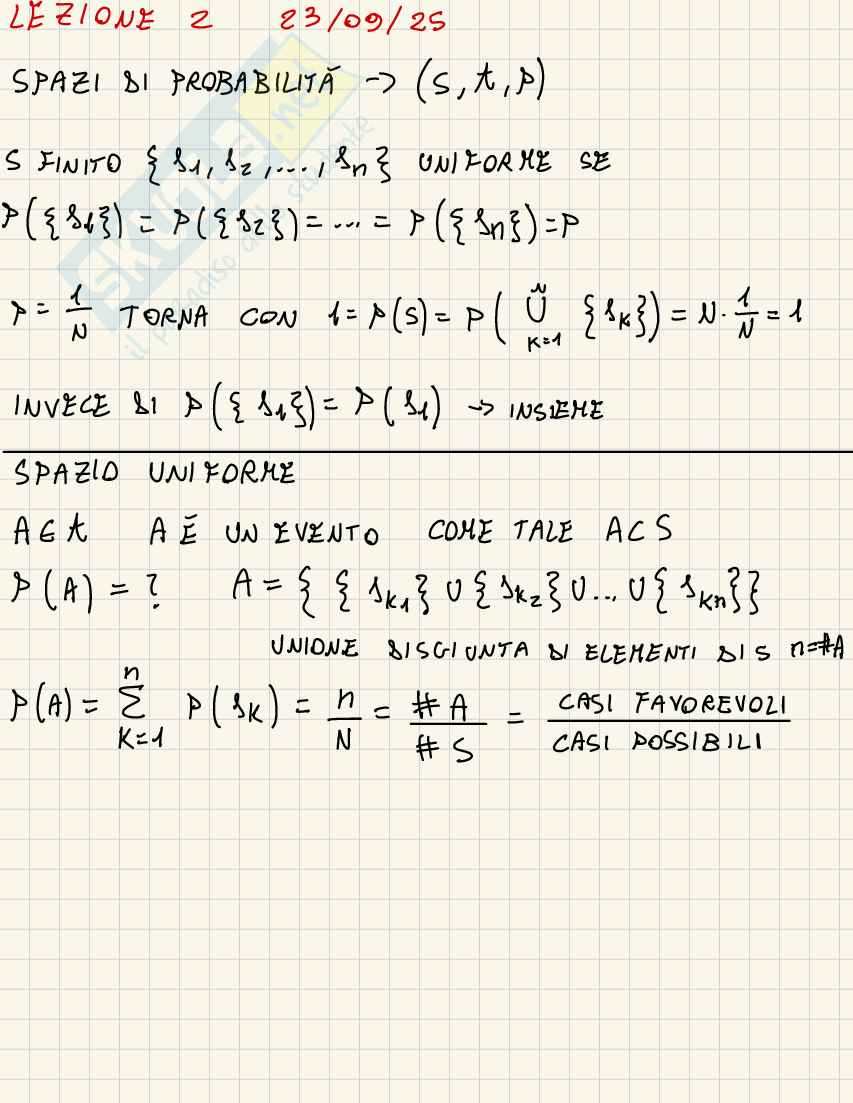 LEZIONE 2 23/09/25
SPAZI DI PROBABILITÀ → (S, A, P)
S FINITO {s₁, s₂, ..., sₙ} UNIFORME SE
P({s₁}) = P({s₂}) = ... = P({sₙ}) = P
P = 1/N TORNA CON 1 = P(S) = P(⋃_{K=1}^{N} {s_K}) = N · 1/N = 1
INVECE DI P({s₁}) = P(s₁) → INSIEME
SPAZIO UNIFORME
A ∈ A A È UN EVENTO COME TALE A ⊂ S
P(A) = ? A = { {s_{K1}} ∪ {s_{K2}} ∪ ... ∪ {s_{Kn}} }
UNIONE DISGIUNTA DI ELEMENTI DI S n = #A
P(A) = ∑_{K=1}^{n} P(s_K) = n/N = #A/#S = CASI FAVOREVOLI/CASI POSSIBILI
SKUOLA.net
il paradiso dello studente